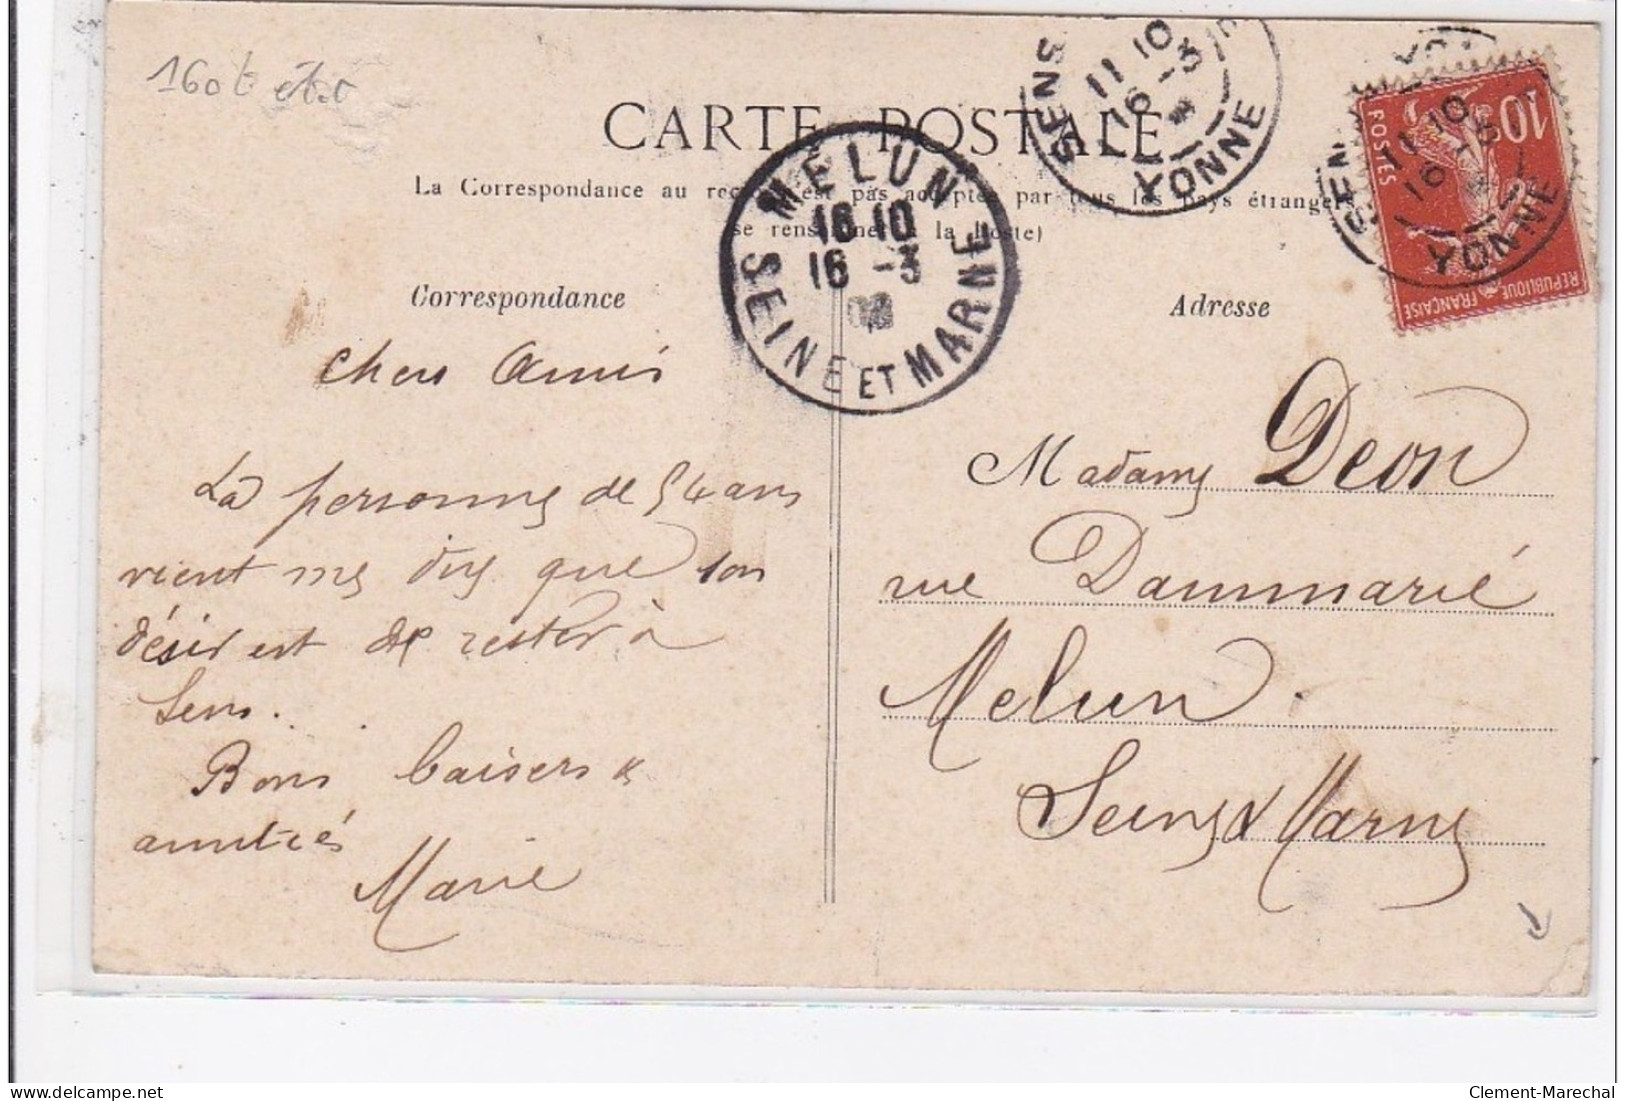 160t
CARTE POSTALE
La Correspondance au est pas acceptée par tous les pays étrangers
se à la Poste)
SENS
11 10
16 -3
YONNE
SENS
11 10
16 -3
YONNE
10
POSTES
REPUBLIQUE FRANÇAISE
MELUN
16 10
16 -3
08
SEINE ET MARNE
Correspondance
Adresse
Chers Amis
La personne de 54 ans
vient me dire que son
désir est de rester à
Sens.
Bons baisers &
amitiés
Marie
Madame Deon
rue Dammarié
Melun
Seine & Marne
Clement-Marechal